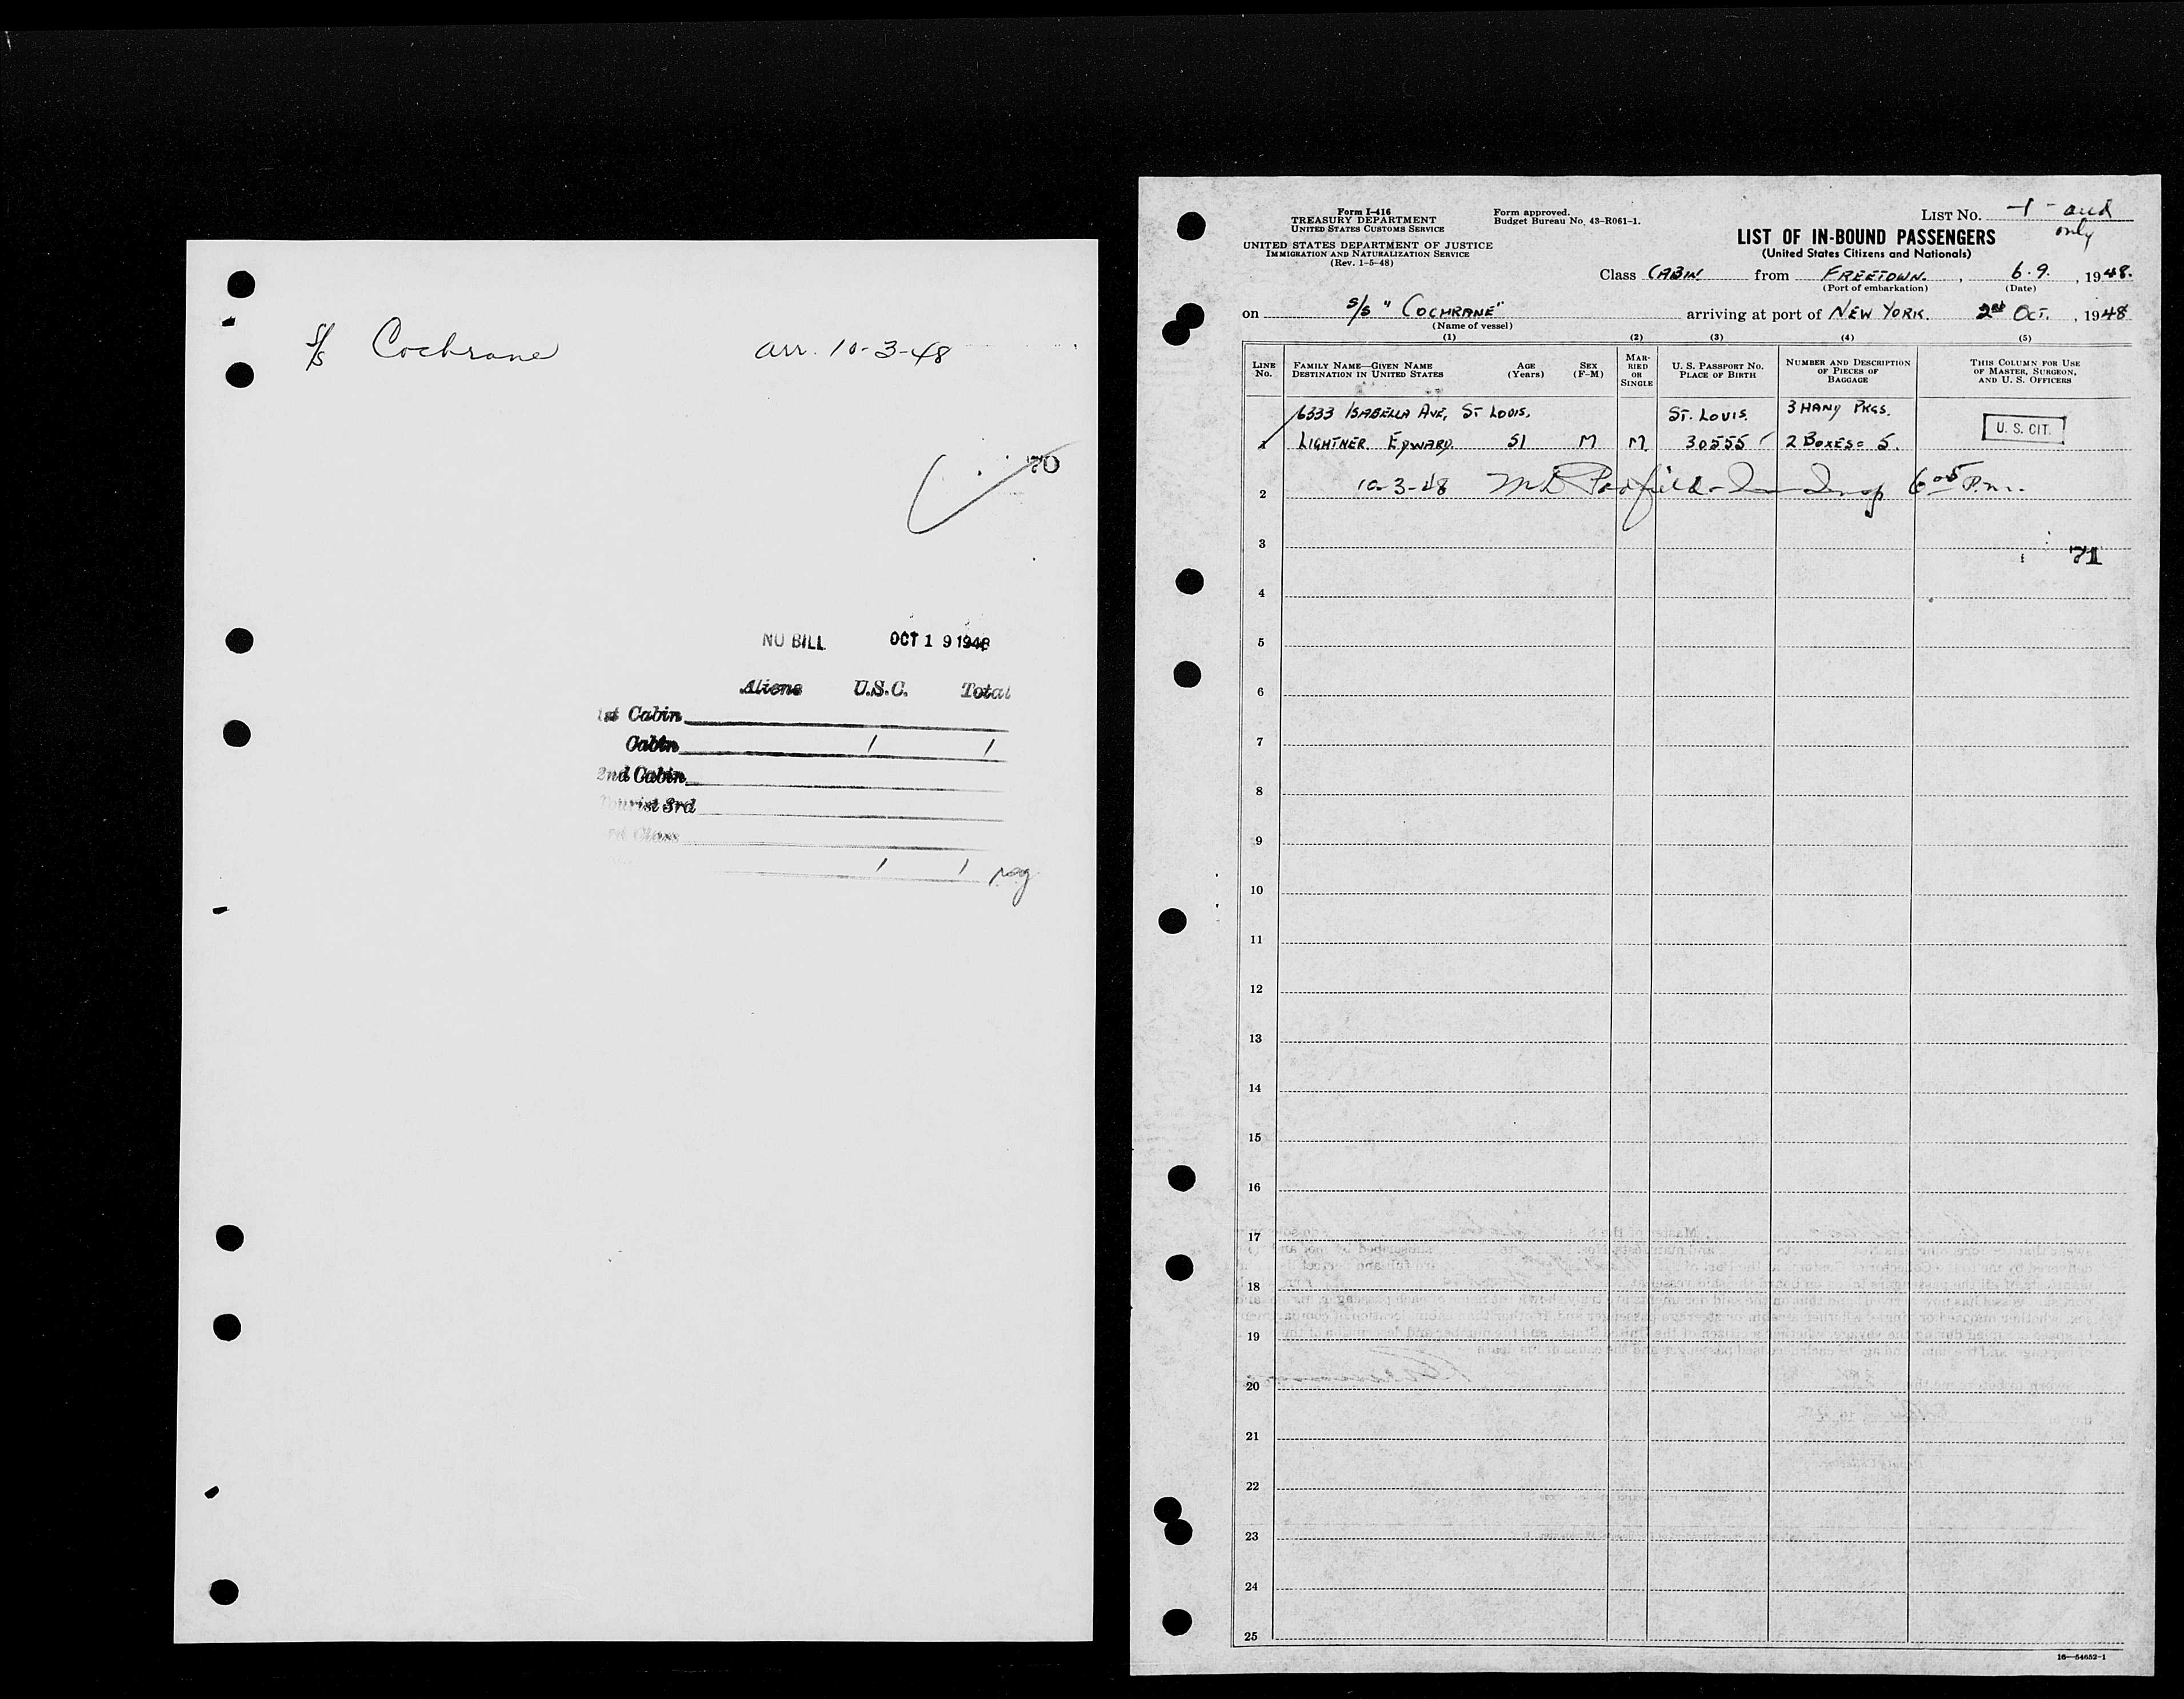 S/S Cochrane arr. 10-3-48
70
NO BILL OCT 19 1948
Aliens U.S.C. Total
1st Cabin
Cabin 1 1
2nd Cabin
Tourist 3rd
3rd Class
1 1
Form I-416
TREASURY DEPARTMENT
UNITED STATES CUSTOMS SERVICE
UNITED STATES DEPARTMENT OF JUSTICE
IMMIGRATION AND NATURALIZATION SERVICE
(Rev. 1-5-48)
Form approved.
Budget Bureau No. 43-R061-1.
LIST No. -1- and
only
LIST OF IN-BOUND PASSENGERS
(United States Citizens and Nationals)
Class CABIN from FREETOWN, 6.9., 1948.
(Port of embarkation) (Date)
on S/S "COCHRANE" arriving at port of NEW YORK. 2nd OCT., 1948
(Name of vessel)
(1) (2) (3) (4) (5)
LINE No.
FAMILY NAME—GIVEN NAME
DESTINATION IN UNITED STATES
AGE (Years)
SEX (F-M)
MARRIED OR SINGLE
U. S. PASSPORT No.
PLACE OF BIRTH
NUMBER AND DESCRIPTION OF PIECES OF BAGGAGE
THIS COLUMN FOR USE OF MASTER, SURGEON, AND U. S. OFFICERS
6333 ISABELLA AVE, ST LOUIS. ST. LOUIS. 3 HAND PKGS.
1 LIGHTNER EDWARD. 51 M M 30555 2 BOXES = 5. U. S. CIT.
2 10-3-48 6 05 P.m.
3
71
4
5
6
7
8
9
10
11
12
13
14
15
16
17
18
19
20
21
22
23
24
25
16—54652-1